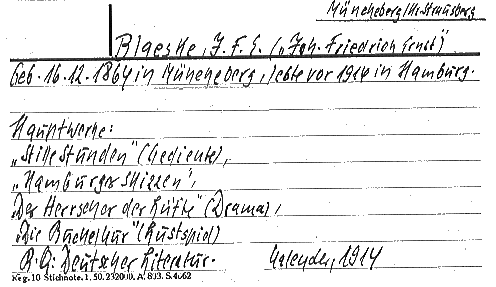 Müncheberg/Kr. Strausberg
Blaeske, J. F. E. („Joh. Friedrich Ernst“)
Geb. 16.12.1864 in Müncheberg, lebte vor 1914 in Hamburg.
Hauptwerke:
„Stille Stunden“ (Gedichte),
„Hamburger Skizzen“,
„Der Herrscher der Lüfte“ (Drama),
„Die (Lustspiel)
Deutscher Literatur- Kalender, 1914
Reg. 10 Stichnote. 1, 50. 232000. A.